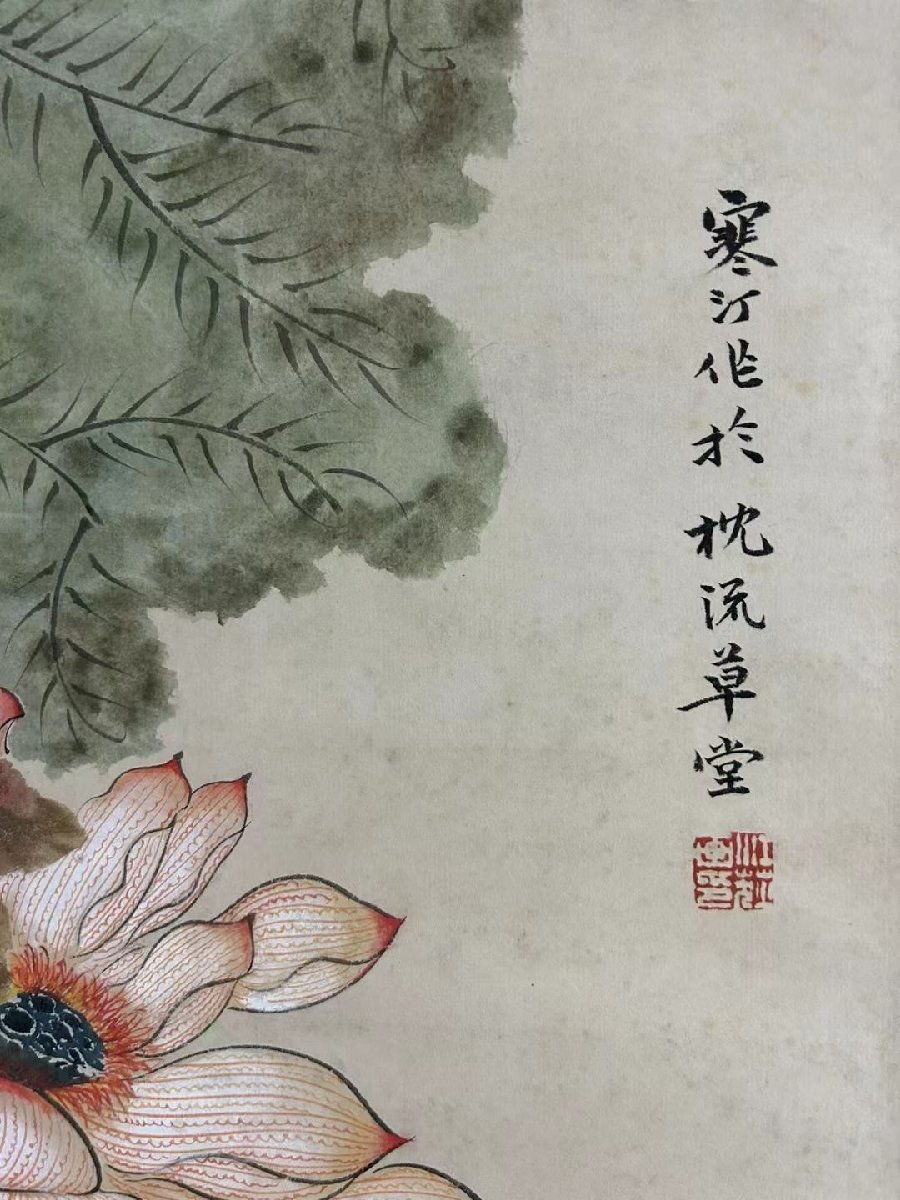 寒汀作於枕流草堂